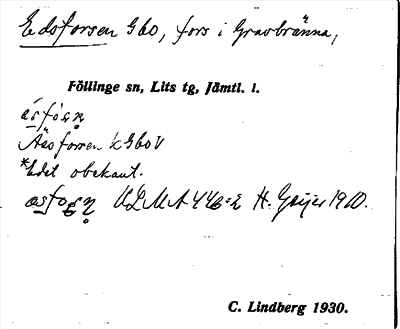 Edsforsen Gbo, fors i Gravbränna,
Föllinge sn, Lits tg, Jämtl. l.
Åsforsen kGboV
*Edet obekant.
ULMA 446:2 H. Geijer 1910.
C. Lindberg 1930.